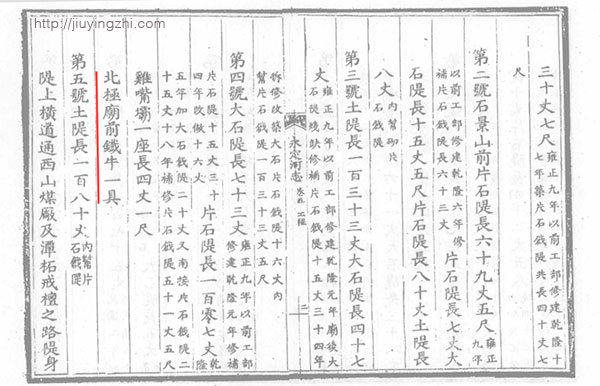 http://jiuyingzhi.com
三十丈七尺雍正九年以前工部修建乾隆十七年築片石戧隄共長四十丈七
尺
第二號石景山前片石隄長六十九丈五尺雍正九年
以前工部修建乾隆六年修補片石戧隄長六十三丈片石隄長七丈大
石隄長十五丈五尺片石隄長八十丈土隄長
八丈內幫砌片石戧隄
第三號土隄長一百三十三丈大石隄長四十七
丈雍正九年以前工部修建乾隆元年廟後大石隄殘缺修補片石戧隄十五丈三十四年
永定河志 卷五 工程 二
拆修改築大石片石戧隄十六丈內幫片石戧隄一百三十三丈五尺
第四號大石隄長七十三丈雍正九年以前工部修建乾隆元年修補
片石戧隄十五丈三十四年改做十六丈片石隄長一百零七丈乾隆
五年加大石戧隄二十丈又南接片石戧隄二十五丈十八年補修片石戧隄五十一丈五尺
雞嘴壩一座長四丈一尺
北極廟前鐵牛一具
第五號土隄長一百八十丈內幫片石戧隄
隄上橫道通西山煤厰及潭柘戒壇之路隄身